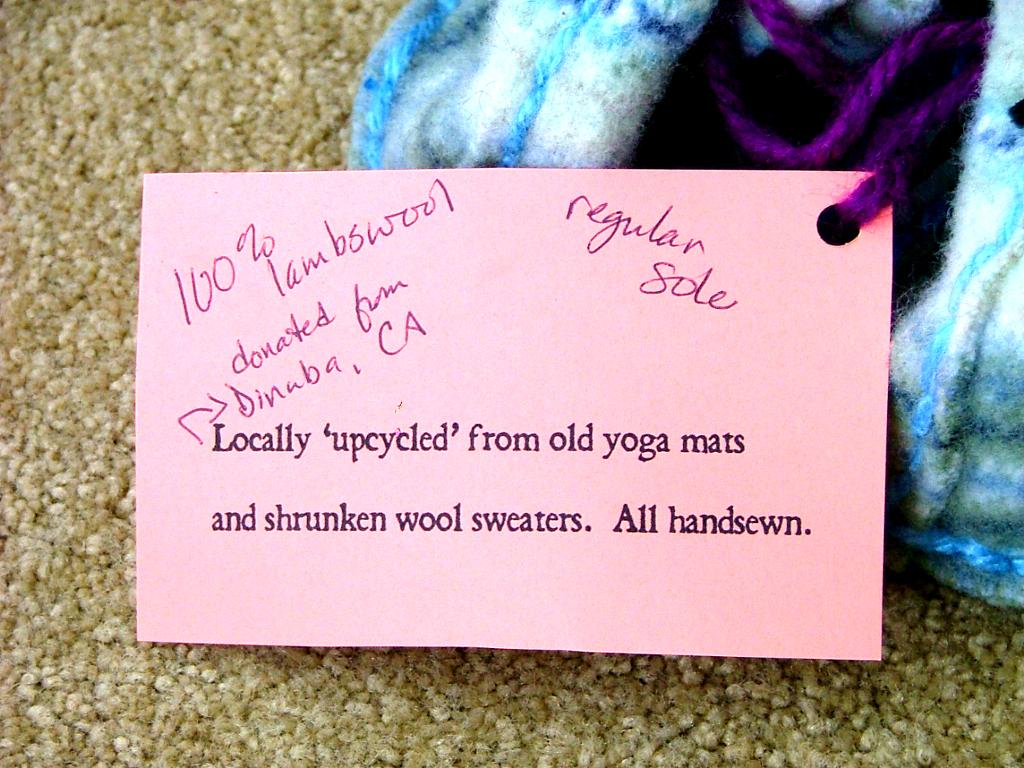 100% lambswool
donated from
Dinuba, CA
regular
sole
Locally 'upcycled' from old yoga mats
and shrunken wool sweaters. All handsewn.